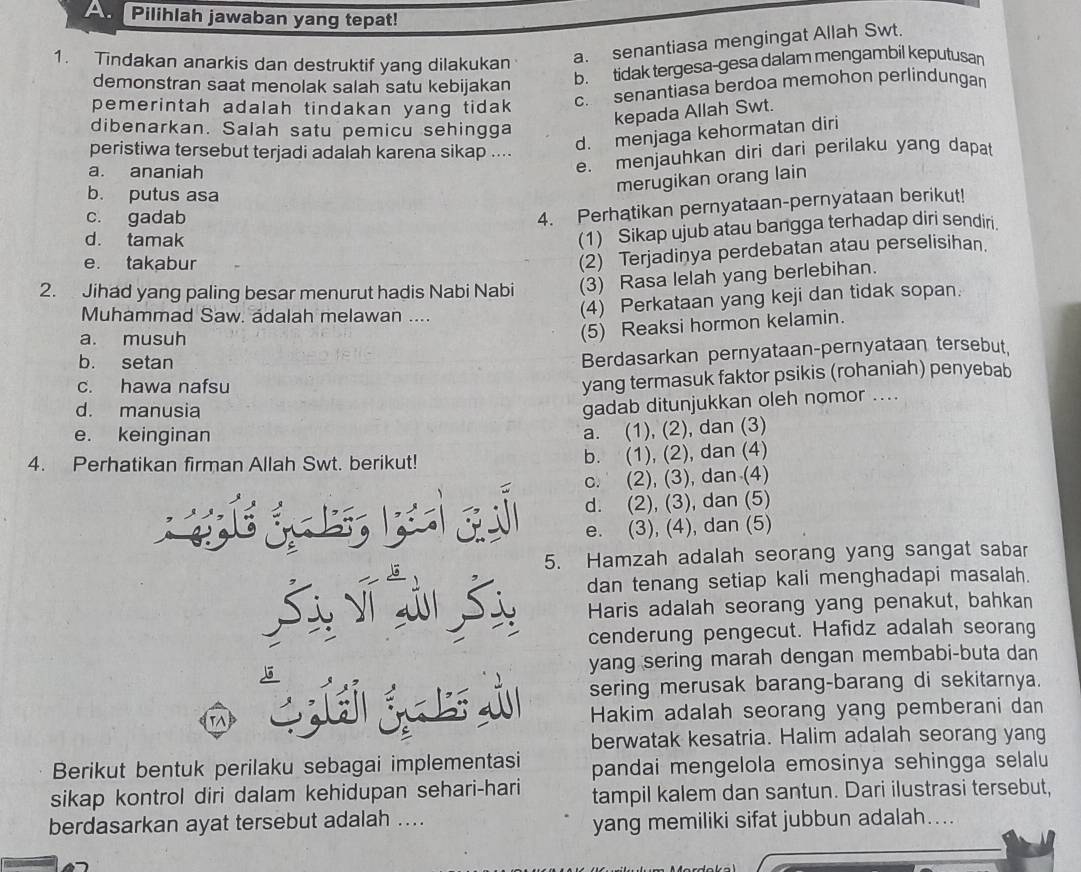 A. Pilihlah jawaban yang tepat!
1. Tindakan anarkis dan destruktif yang dilakukan
demonstran saat menolak salah satu kebijakan
pemerintah adalah tindakan yang tidak
dibenarkan. Salah satu pemicu sehingga
peristiwa tersebut terjadi adalah karena sikap ....
a. ananiah
b. putus asa
c. gadab
d. tamak
e. takabur
2. Jihad yang paling besar menurut hadis Nabi Nabi
Muhammad Saw. adalah melawan ....
a. musuh
b. setan
c. hawa nafsu
d. manusia
e. keinginan
4. Perhatikan firman Allah Swt. berikut!
الَّذِيْنَ اٰمَنُوْا وَتَطْمَىِٕنُّ قُلُوْبُهُمْ
بِذِكْرِ اللّٰهِ ۗ اَلَا بِذِكْرِ
اللّٰهِ تَطْمَىِٕنُّ الْقُلُوْبُ ۗ ٢٨
Berikut bentuk perilaku sebagai implementasi
sikap kontrol diri dalam kehidupan sehari-hari
berdasarkan ayat tersebut adalah ....
a. senantiasa mengingat Allah Swt.
b. tidak tergesa-gesa dalam mengambil keputusan
c. senantiasa berdoa memohon perlindungan
kepada Allah Swt.
d. menjaga kehormatan diri
e. menjauhkan diri dari perilaku yang dapat
merugikan orang lain
4. Perhatikan pernyataan-pernyataan berikut!
(1) Sikap ujub atau bangga terhadap diri sendiri.
(2) Terjadinya perdebatan atau perselisihan.
(3) Rasa lelah yang berlebihan.
(4) Perkataan yang keji dan tidak sopan.
(5) Reaksi hormon kelamin.
Berdasarkan pernyataan-pernyataan tersebut,
yang termasuk faktor psikis (rohaniah) penyebab
gadab ditunjukkan oleh nomor ....
a. (1), (2), dan (3)
b. (1), (2), dan (4)
c. (2), (3), dan (4)
d. (2), (3), dan (5)
e. (3), (4), dan (5)
5. Hamzah adalah seorang yang sangat sabar
dan tenang setiap kali menghadapi masalah.
Haris adalah seorang yang penakut, bahkan
cenderung pengecut. Hafidz adalah seorang
yang sering marah dengan membabi-buta dan
sering merusak barang-barang di sekitarnya.
Hakim adalah seorang yang pemberani dan
berwatak kesatria. Halim adalah seorang yang
pandai mengelola emosinya sehingga selalu
tampil kalem dan santun. Dari ilustrasi tersebut,
yang memiliki sifat jubbun adalah....